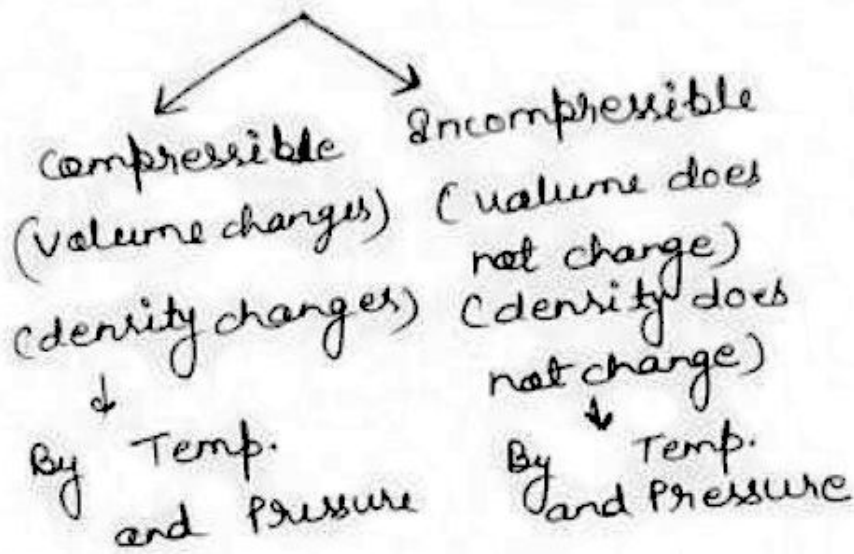 Compressible
(Volume changes)
(density changes)
↓
By Temp.
and Pressure
Incompressible
(Volume does
not change)
(density does
not change)
↓
By Temp.
and Pressure